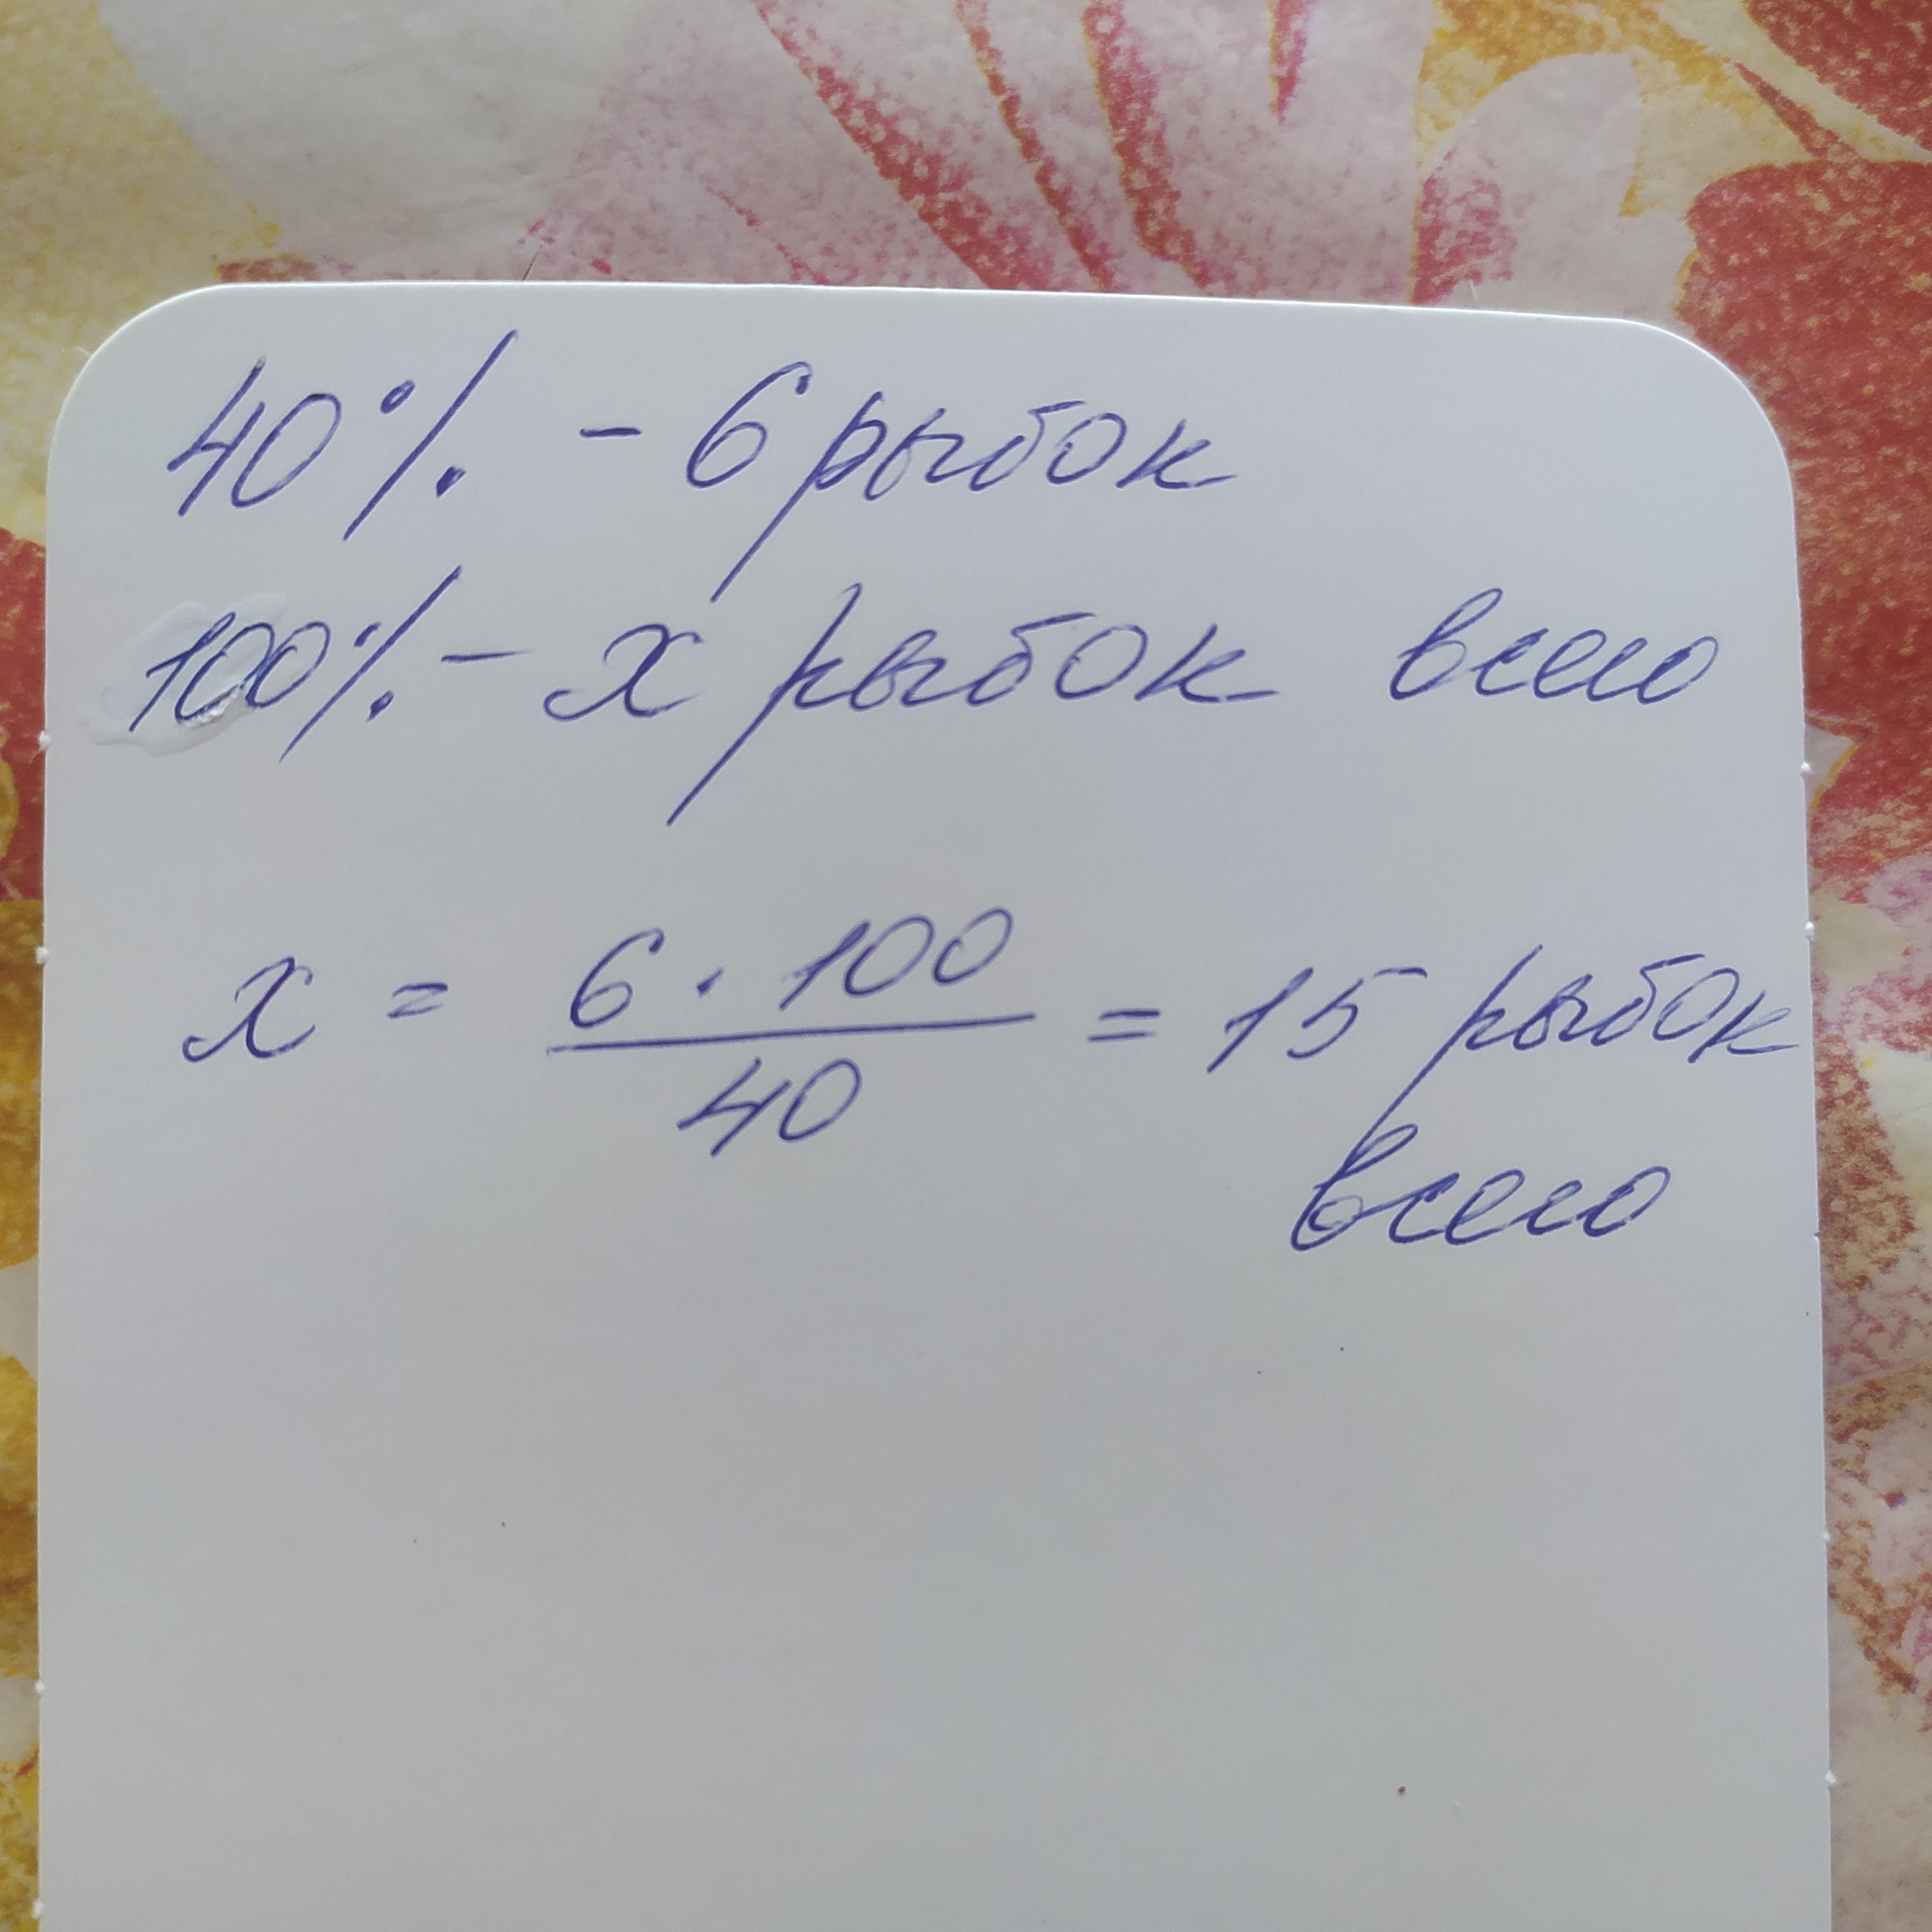 40% - 6 рыбок
100% - х рыбок всего
х = 6 · 100 / 40 = 15 рыбок
всего